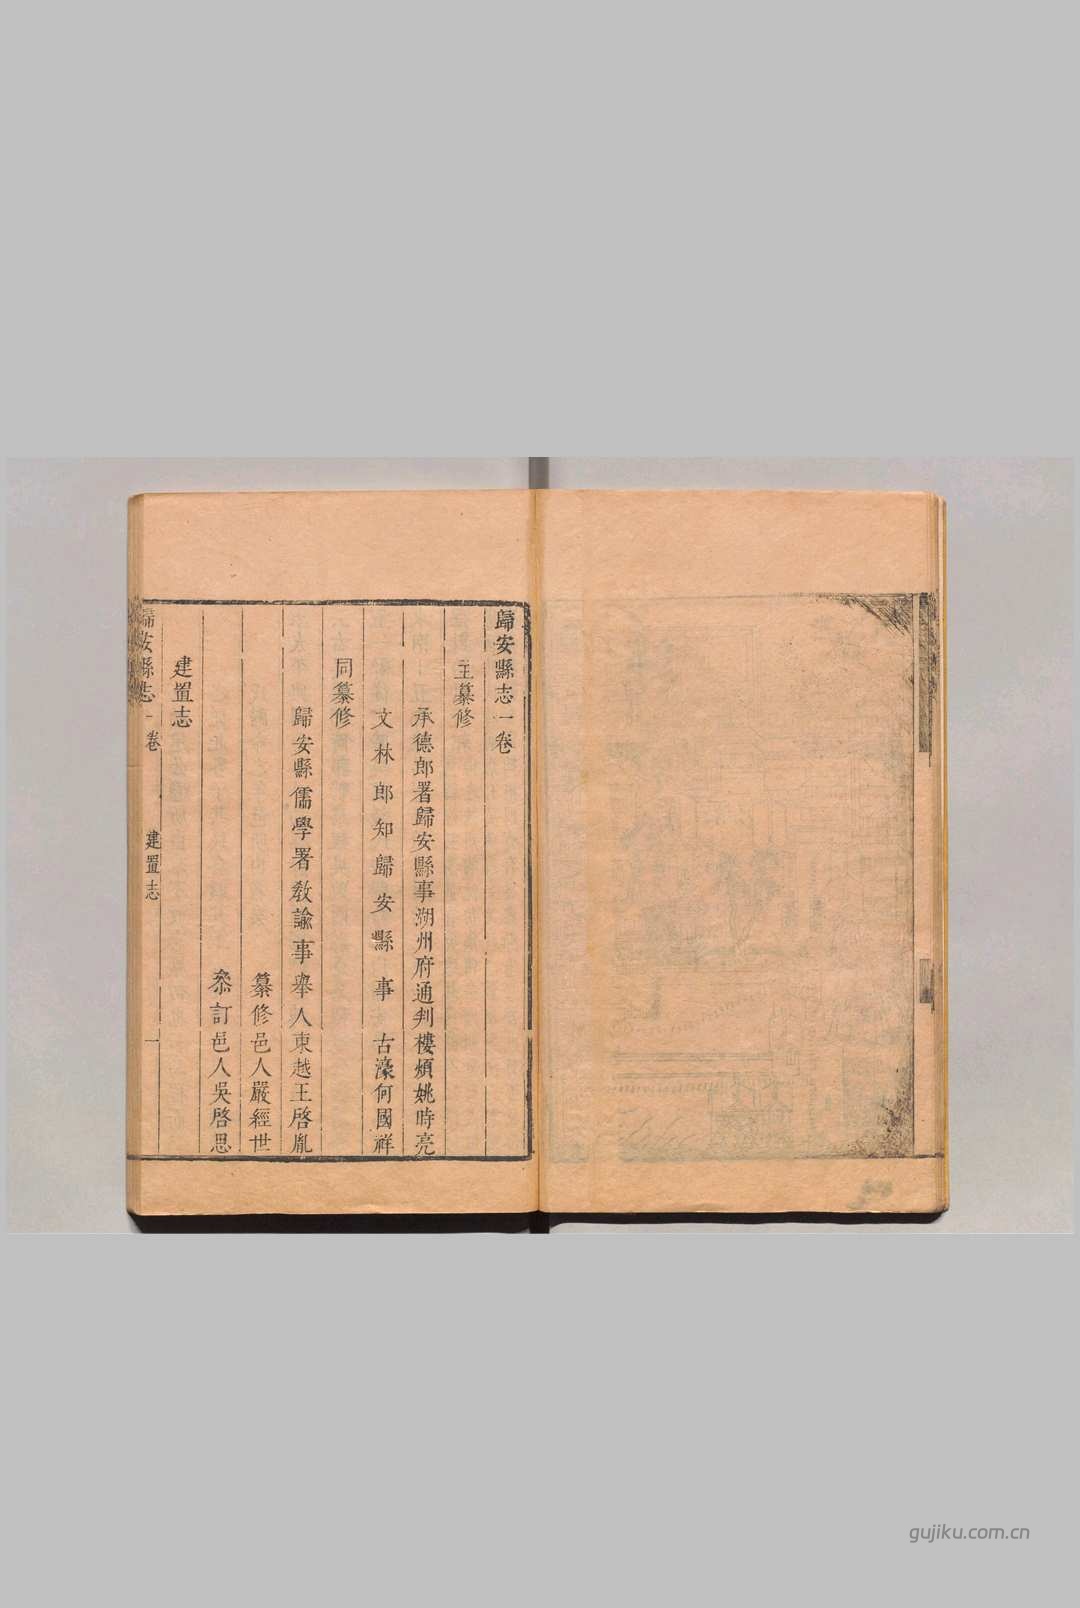 歸安縣志一卷
主纂修
承德郎署歸安縣事湖州府通判樓煩姚時亮
文林郎知歸安縣事古濠何國祥
同纂修
歸安縣儒學署教諭事舉人東越王啓胤
纂修邑人嚴經世
叅訂邑人吳啓思
建置志
歸安縣志 一卷 建置志 一
gujiku.com.cn